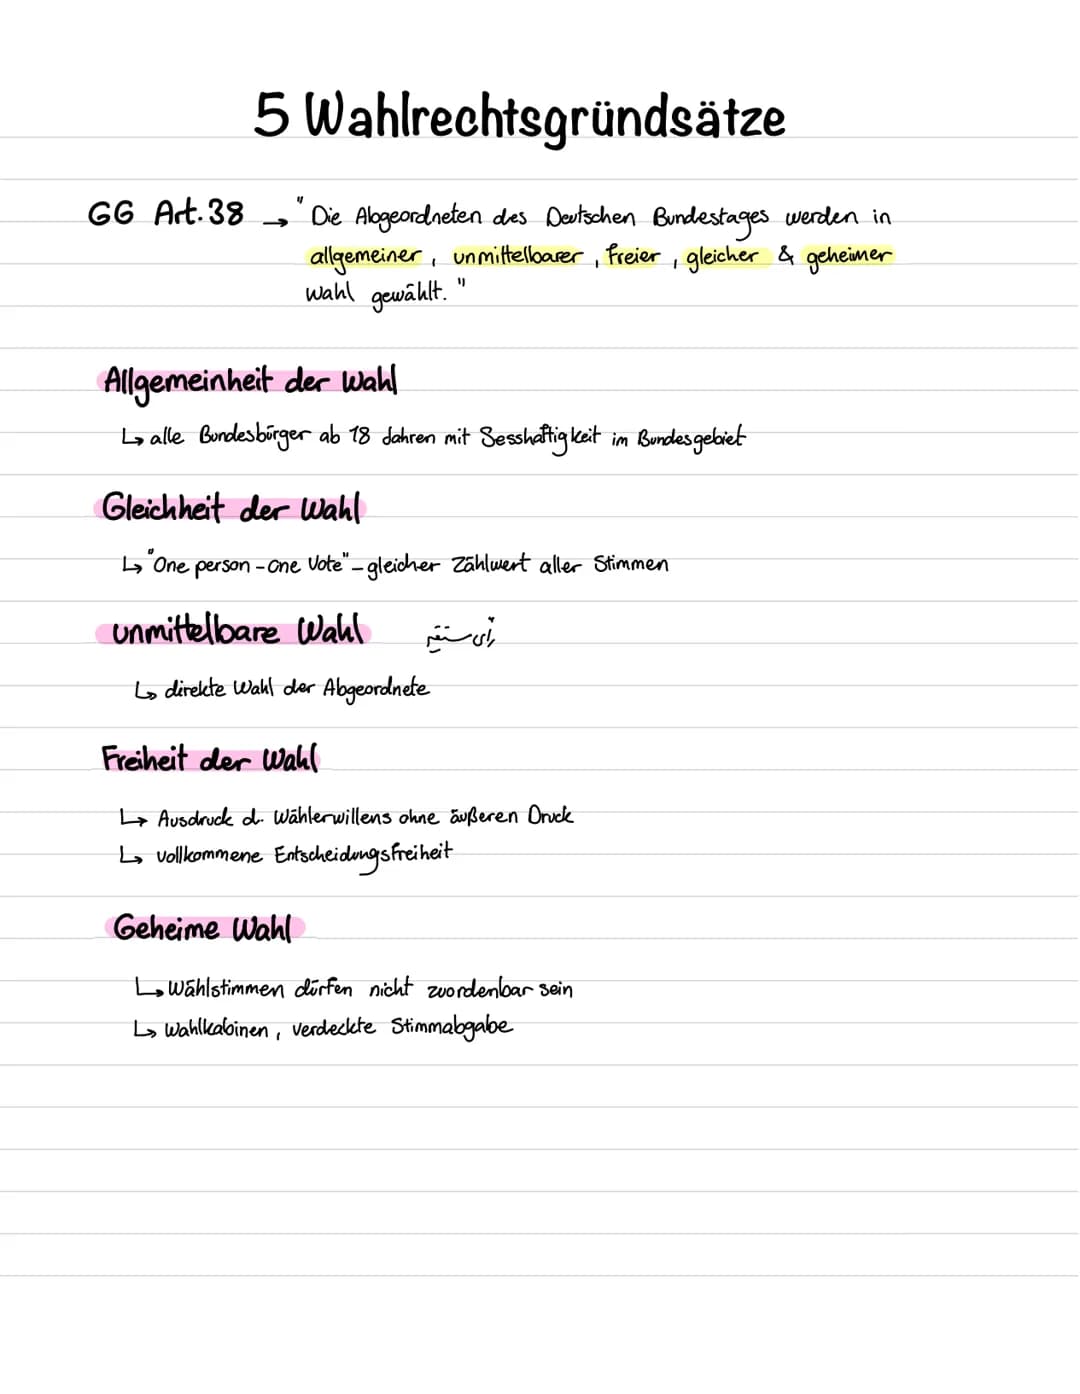 5 Wahlrechtsgründsätze
GG Art. 38 → "Die Abgeordneten des Deutschen Bundestages werden in
allgemeiner, unmittelbarer, freier, gleicher & geheimer
Wahl gewählt."
Allgemeinheit der Wahl
↳ alle Bundesbürger ab 18 Jahren mit Sesshaftigkeit im Bundesgebiet
Gleichheit der Wahl
↳ "One person - one Vote" - gleicher Zählwert aller Stimmen
unmittelbare Wahl
↳ direkte Wahl der Abgeordnete
Freiheit der Wahl
↳ Ausdruck d. Wählerwillens ohne äußeren Druck
↳ vollkommene Entscheidungsfreiheit
Geheime Wahl
↳ Wählstimmen dürfen nicht zuordenbar sein
↳ Wahlkabinen, verdeckte Stimmabgabe